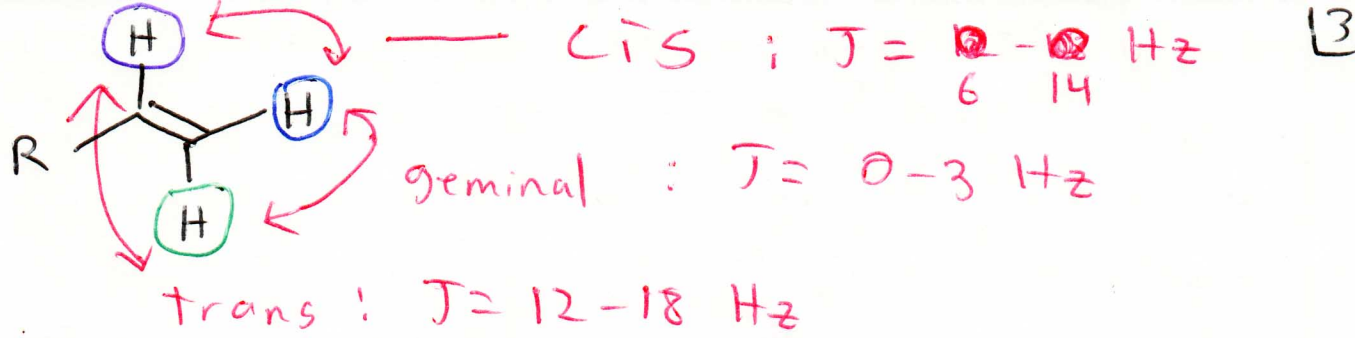 H — cis : J = 6 - 14 Hz 3
H
R
geminal : J = 0-3 Hz
H
trans : J = 12-18 Hz